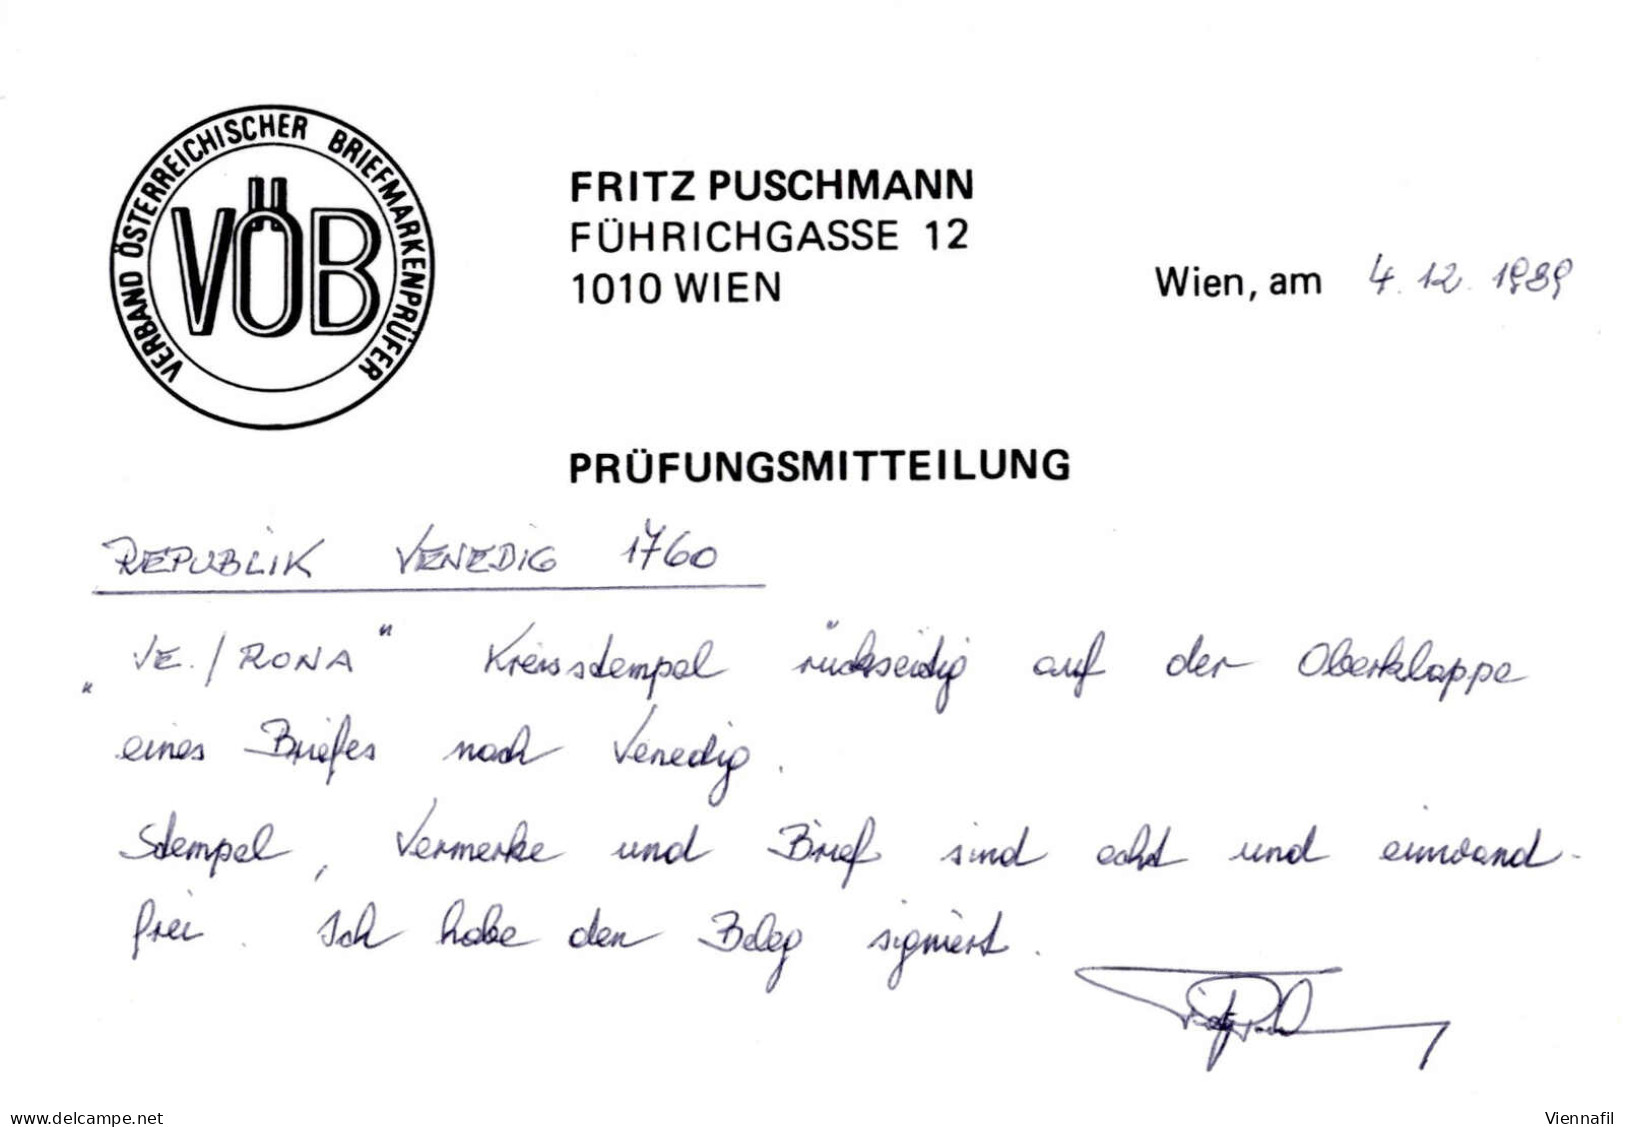 VERBAND ÖSTERREICHISCHER BRIEFMARKENPRÜFER
VÖB
FRITZ PUSCHMANN
FÜHRICHGASSE 12
1010 WIEN
Wien, am 4.12.1989
PRÜFUNGSMITTEILUNG
REPUBLIK VENEDIG 1760
„VE./RONA" Kreisstempel rückseitig auf der Oberklappe
eines Briefes nach Venedig.
Stempel, Vermerke und Brief sind echt und einwand-
frei. Ich habe den Beleg signiert.
www.delcampe.net
Viennafil